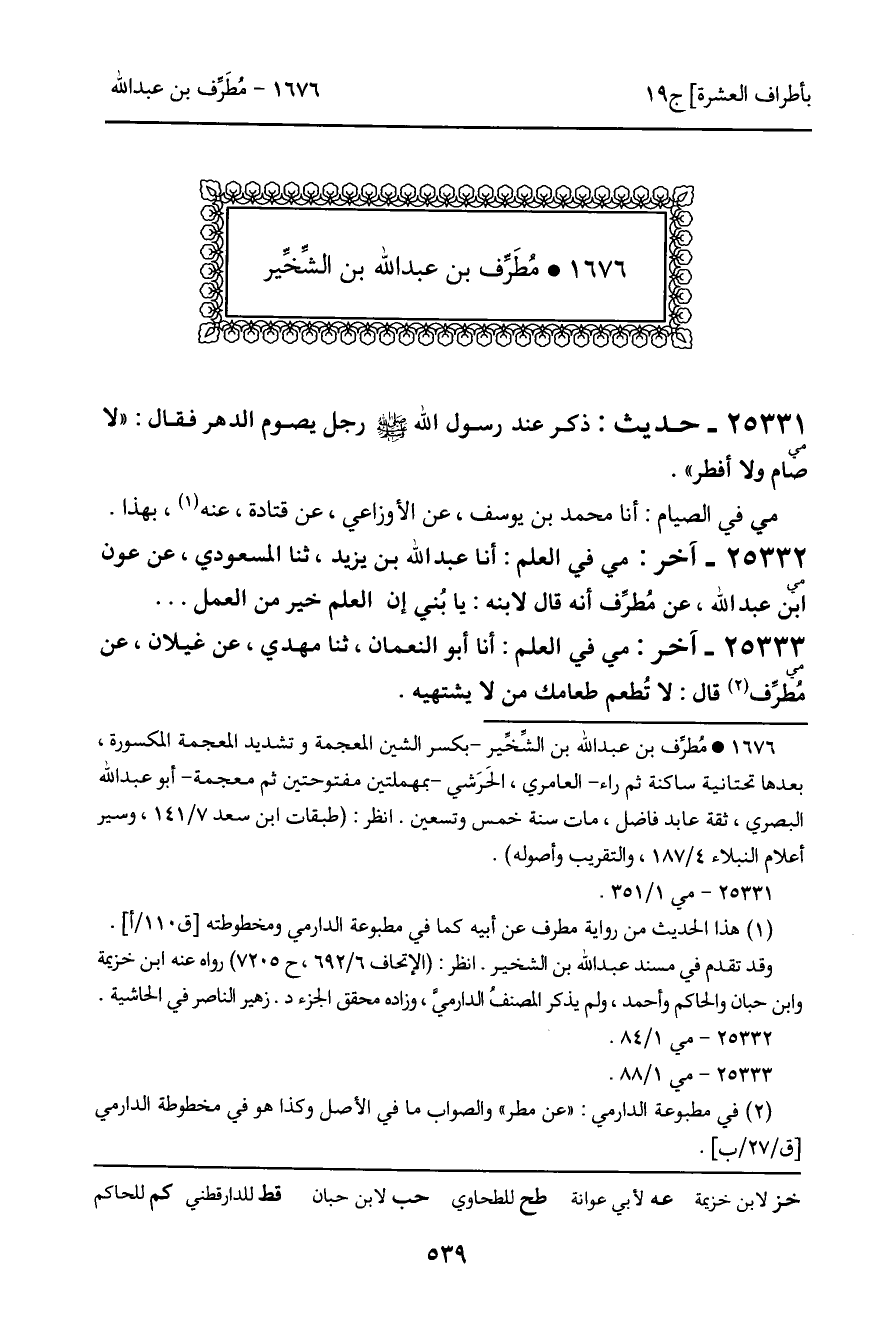 بأطراف العشرة] ج١٩
١٦٧٦ - مُطَرِّف بن عبدالله
١٦٧٦ ● مُطَرِّف بن عبدالله بن الشِّخِّير
٢٥٣٣١ ـ حـديـث : ذكر عند رسول الله ﷺ رجل يصوم الدهر فقال : «لا
مي
صام ولا أفطر» .
مي في الصيام : أنا محمد بن يوسف ، عن الأوزاعي ، عن قتادة ، عنه(١) ، بهذا .
٢٥٣٣٢ ـ آخر : مي في العلم : أنا عبدالله بن يزيد ، ثنا المسعودي ، عن عون
مي
ابن عبدالله ، عن مُطرِّف أنه قال لابنه : يا بُني إن العلم خير من العمل ...
٢٥٣٣٣ ـ آخر : مي في العلم : أنا أبو النعمان ، ثنا مهدي ، عن غيلان ، عن
مي
مُطرِّف(٢) قال : لا تُطعم طعامك من لا يشتهيه .
١٦٧٦ ● مُطرِّف بن عبدالله بن الشِّخِّير -بكسر الشين المعجمة و تشديد المعجمة المكسورة ،
بعدها تحتانية ساكنة ثم راء- العامري ، الحَرَشي -بمهملتين مفتوحتين ثم معجمة- أبو عبدالله
البصري ، ثقة عابد فاضل ، مات سنة خمس وتسعين . انظر : (طبقات ابن سعد ١٤١/٧ ، وسير
أعلام النبلاء ١٨٧/٤ ، والتقريب وأصوله) .
٢٥٣٣١ - مي ٣٥١/١ .
(١) هذا الحديث من رواية مطرف عن أبيه كما في مطبوعة الدارمي ومخطوطته [ق١١٠/أ] .
وقد تقدم في مسند عبدالله بن الشخير . انظر : (الإتحاف ٦٩٢/٦ ، ح ٧٢٠٥) رواه عنه ابن خزيمة
وابن حبان والحاكم وأحمد ، ولم يذكر المصنفُ الدارميَّ ، وزاده محقق الجزء د . زهير الناصر في الحاشية .
٢٥٣٣٢ - مي ٨٤/١ .
٢٥٣٣٣ - مي ٨٨/١ .
(٢) في مطبوعة الدارمي : «عن مطر» والصواب ما في الأصل وكذا هو في مخطوطة الدارمي
[ق/٢٧/ب] .
خز لابن خزيمة عه لأبي عوانة طح للطحاوي حب لابن حبان قط للدارقطني كم للحاكم
٥٣٩